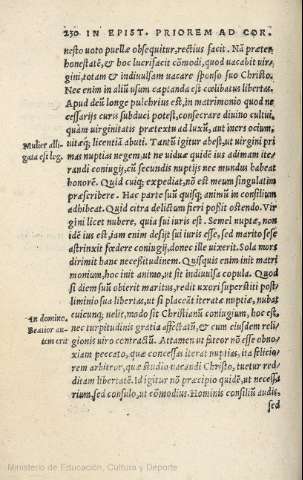 250 IN EPIST. PRIOREM AD COR-
nesto uoto puellæ obsequitur, rectius facit. Nā præter
honestatē, & hoc lucrifacit cōmodi, quod uacabit uir⸗
gini, totam & indiuulsam uacare sponso suo Christo.
Nec enim in aliū usum captanda est cœlibatus libertas.
Apud deū longe pulchrius est, in matrimonio quod ne
cessarijs curis subduci potest, consecrare diuino cultui,
quàm uirginitatis prætextu ad luxū, aut iners ocium,
Mulier alli⸗
gata est leg.
uitæq; licentiā abuti. Tantū igitur abest, ut uirgini pri
mas nuptias negem, ut ne uiduæ quidē ius adimam ite⸗
randi coniugij, cū secundis nuptijs nec mundus habeat
honorē. Quid cuiq; expediat, nō est meum singulatim
præscribere. Hac parte suū quisq; animū in consilium
adhibeat. Quid citra delictum fieri possit ostendo. Vir
gini licet nubere, quia sui iuris est. Semel nuptæ, non
idē ius est, iam enim desijt sui iuris esse, sed marito sese
astrinxit fœdere coniugij, donec ille uixerit. Sola mors
dirimit hanc necessitudinem. Quisquis enim init matri
monium, hoc init animo, ut sit indiuulsa copula. Quod
si diem suū obierit maritus, redit uxori superstiti post⸗
liminio sua libertas, ut si placeāt iteratæ nuptiæ, nubat
In domino.
cuicunq; uelit, modo sit Christianū coniugium, hoc est,
Beatior au⸗
tem erit
nec turpitudinis gratia affectatū, & cum eiusdem reli⸗
gionis uiro contractū. Attamen ut fateor nō esse obno⸗
xiam peccato, quæ concessas iterat nuptias, ita felicio⸗
rem arbitror, quæ studio uacandi Christo, tuetur red⸗
ditam libertatē. Id igitur nō præcipio quidē, ut necessa
rium, sed consulo, ut cōmodius. Hominis consiliū audis,
sed
Ministerio de Educación, Cultura y Deporte